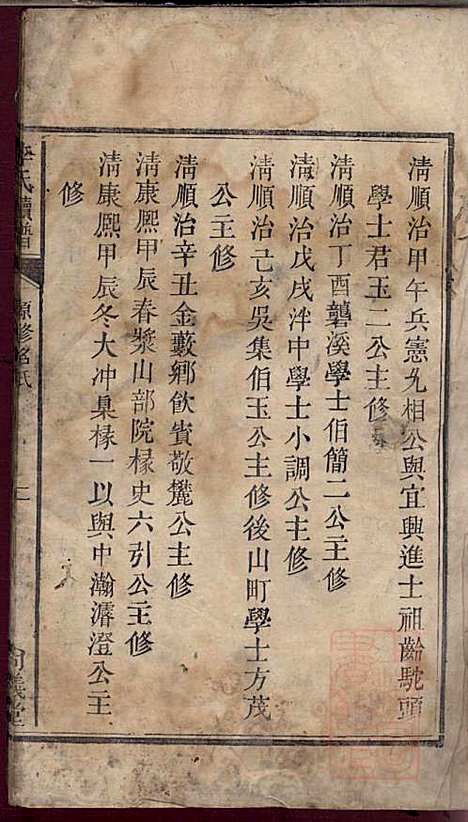 清順治甲午兵憲光相公與宜興進士祖齡駝頭
學士君玉二公主修
清順治丁酉龔溪學士伯簡二公主修
清順治戊戌泮中學士小調公主修
清順治己亥吳集伯玉公主修後山町學士方茂
公主修
清順治辛丑金藪鄉飲賓敬麓公主修
清康熙甲辰春漿山部院椽史六引公主修
清康熙甲辰冬大冲臬椽一以與中瀚濬澄公主
修
氏續譜
源修名氏
義堂